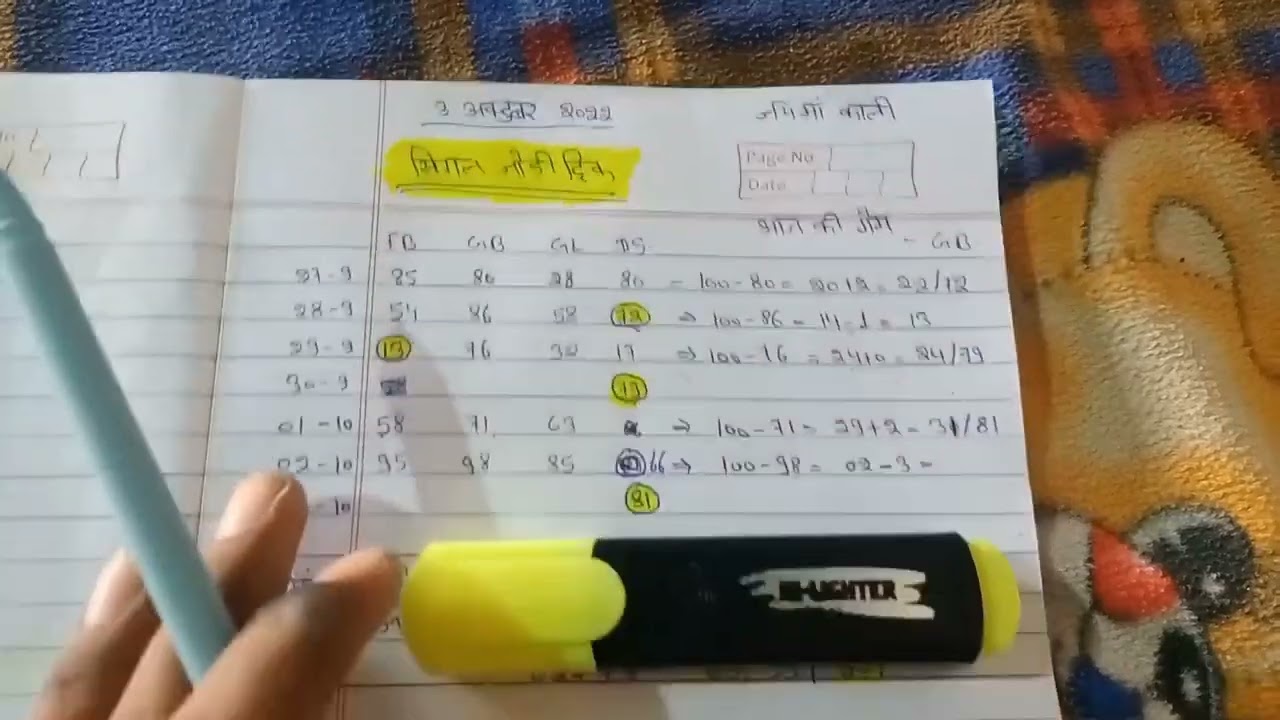 3 अक्टूबर 2022
जय माँ काली
सिंगल जोडी ट्रिक
Page No
Date
शान की गेम - GB
FB GB GL DS
27-9 85 80 28 80 - 100-80= 20+2= 22/72
28-9 54 86 58 72 ⇒ 100-86= 14-1= 13
29-9 13 76 30 17 ⇒ 100-76= 24+0= 24/79
30-9 13
01-10 58 71 69 ⇒ 100-71= 29+2= 31/81
02-10 95 98 85 66 ⇒ 100-98= 02-3=
-10 81
HI-LIGHTER